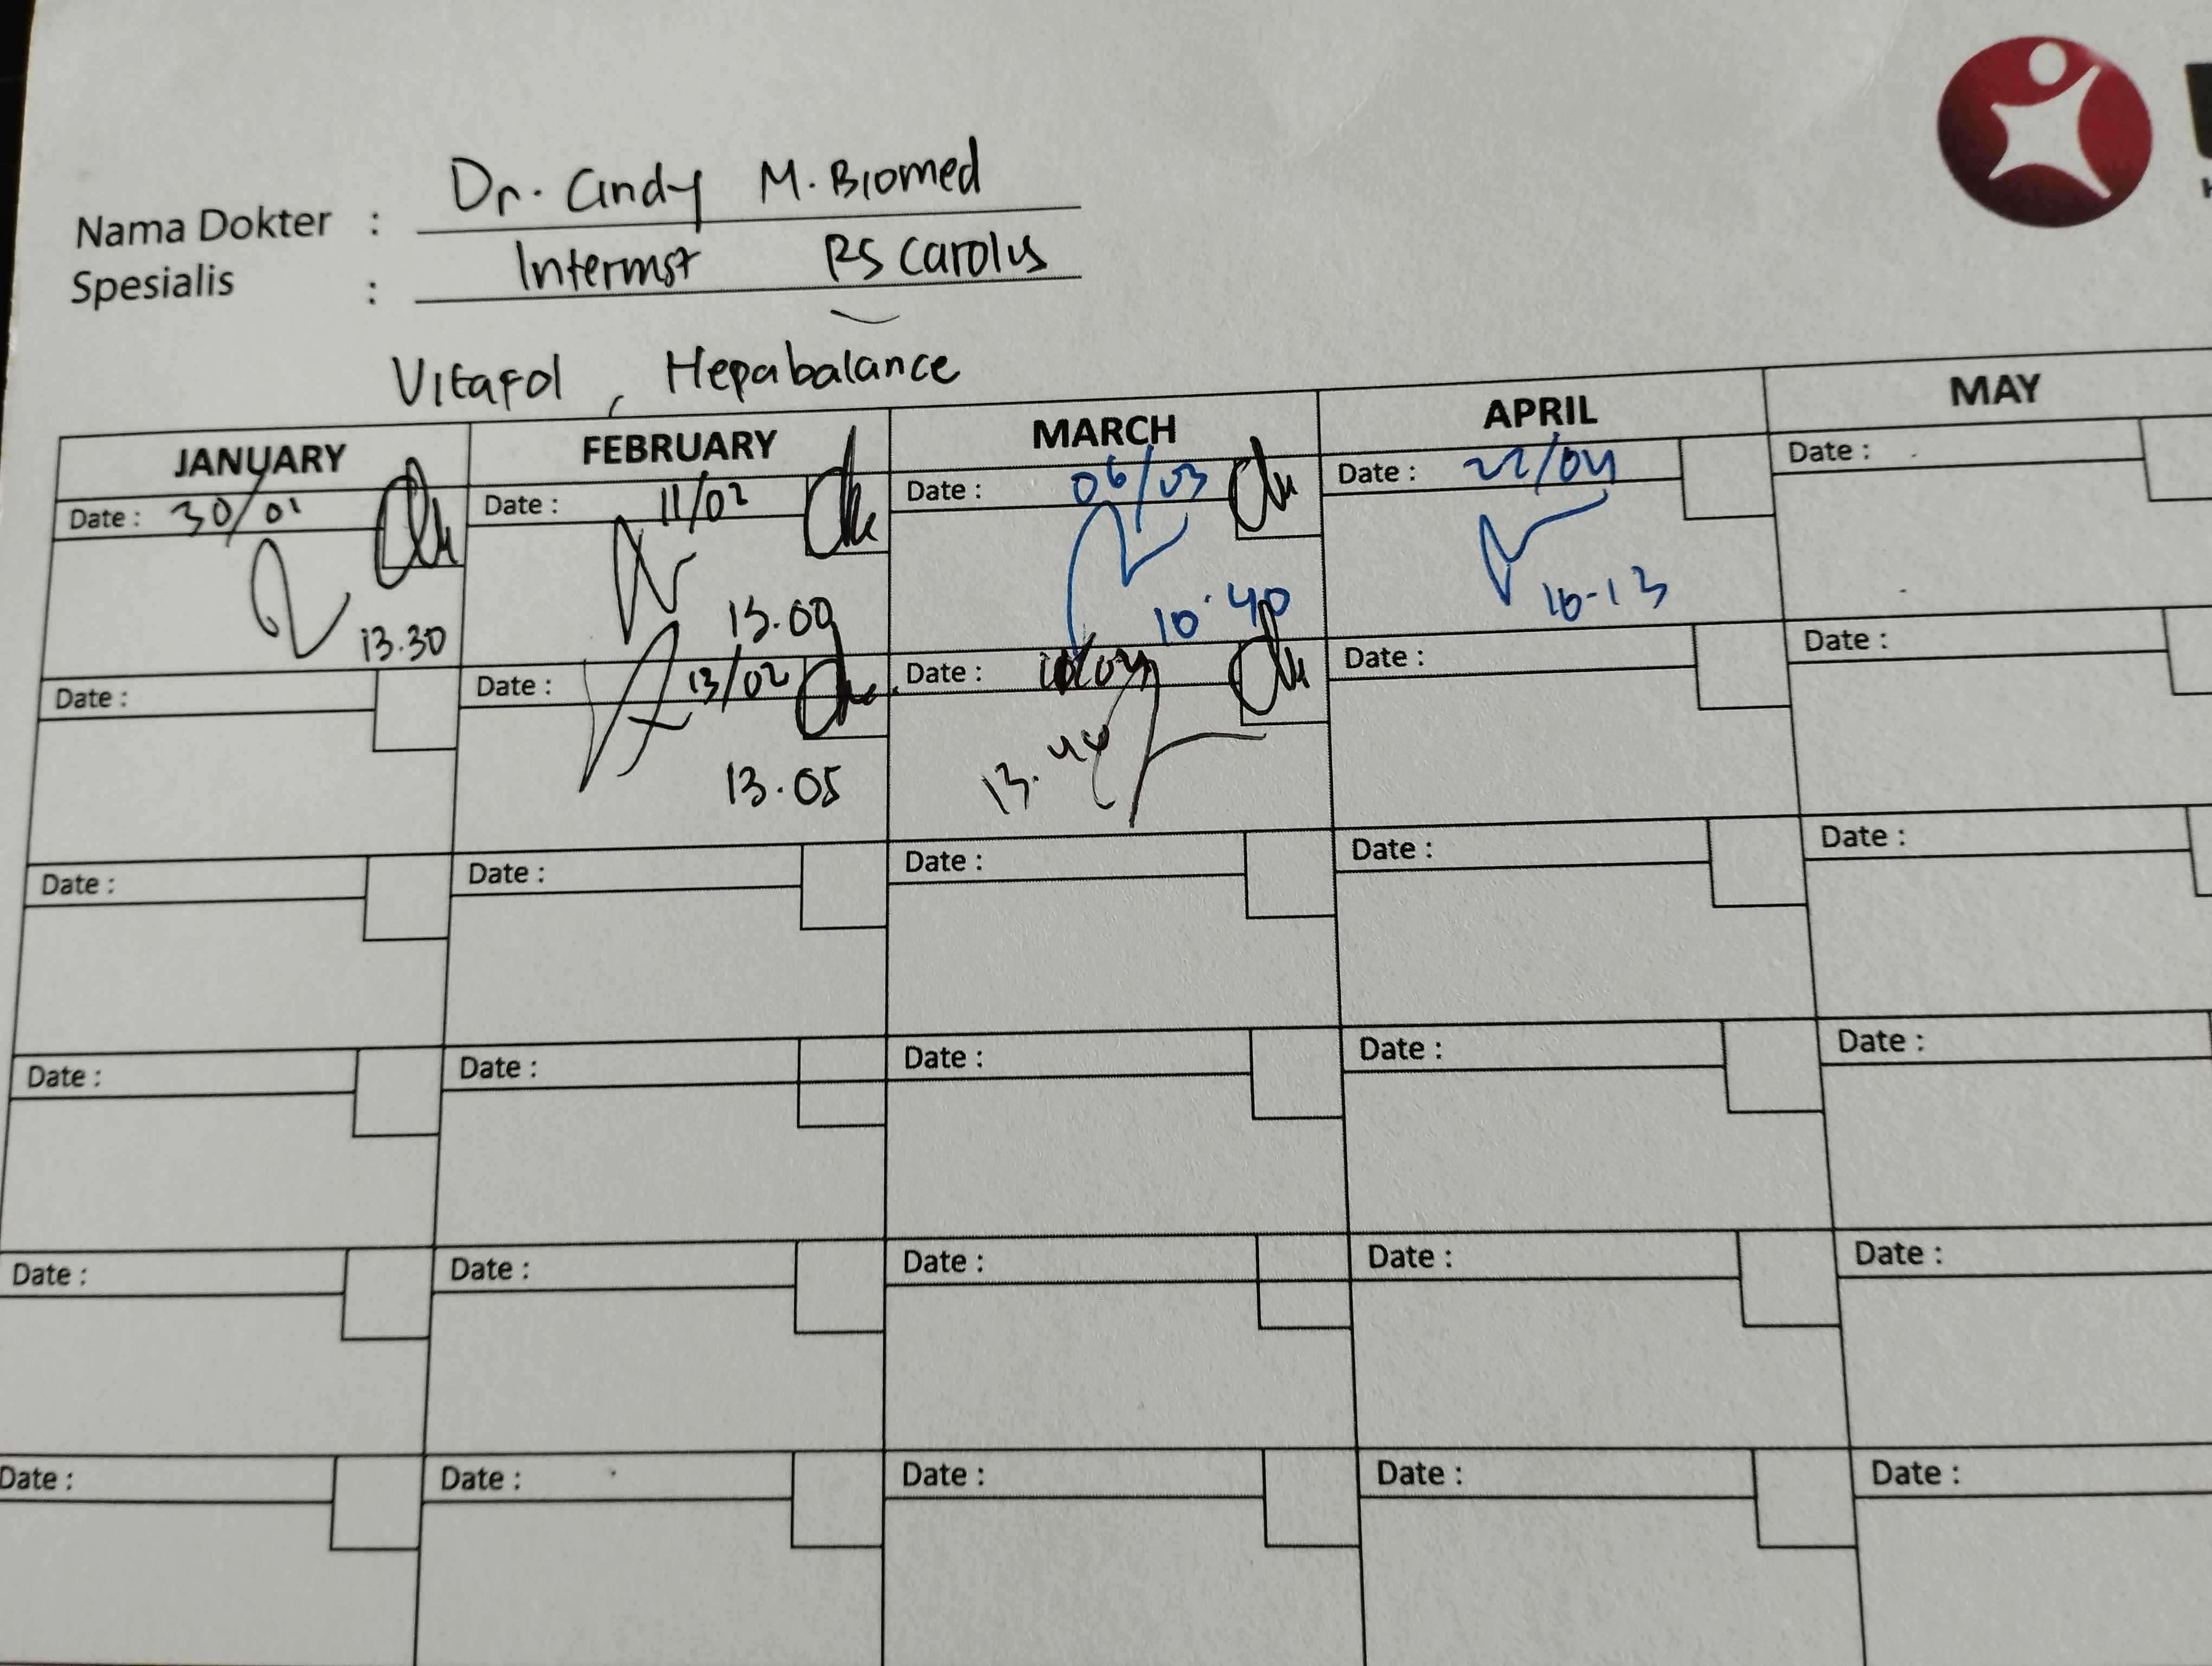 Dr. Cindy M. Biomed
Nama Dokter :
Internist RS Carolus
Spesialis :
Vitafol, Hepabalance
JANUARY FEBRUARY MARCH APRIL MAY
Date : 30/01 Date : 11/02 Date : 06/03 Date : 22/04 Date :
13.30 13.00 10.40 10-13
Date : Date : 13/02 Date : Date : Date :
13.05 13.44
Date : Date : Date : Date : Date :
Date : Date : Date : Date : Date :
Date : Date : Date : Date : Date :
Date : Date : Date : Date : Date :